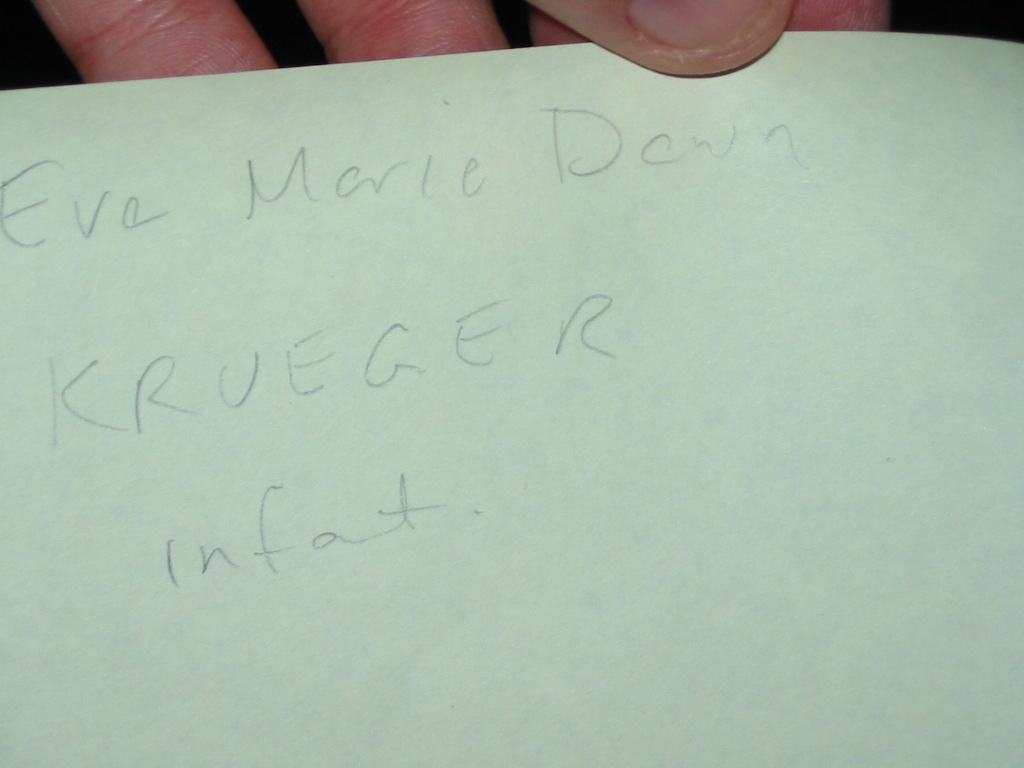 Eva Marie Dawn
KRUEGER
infat.